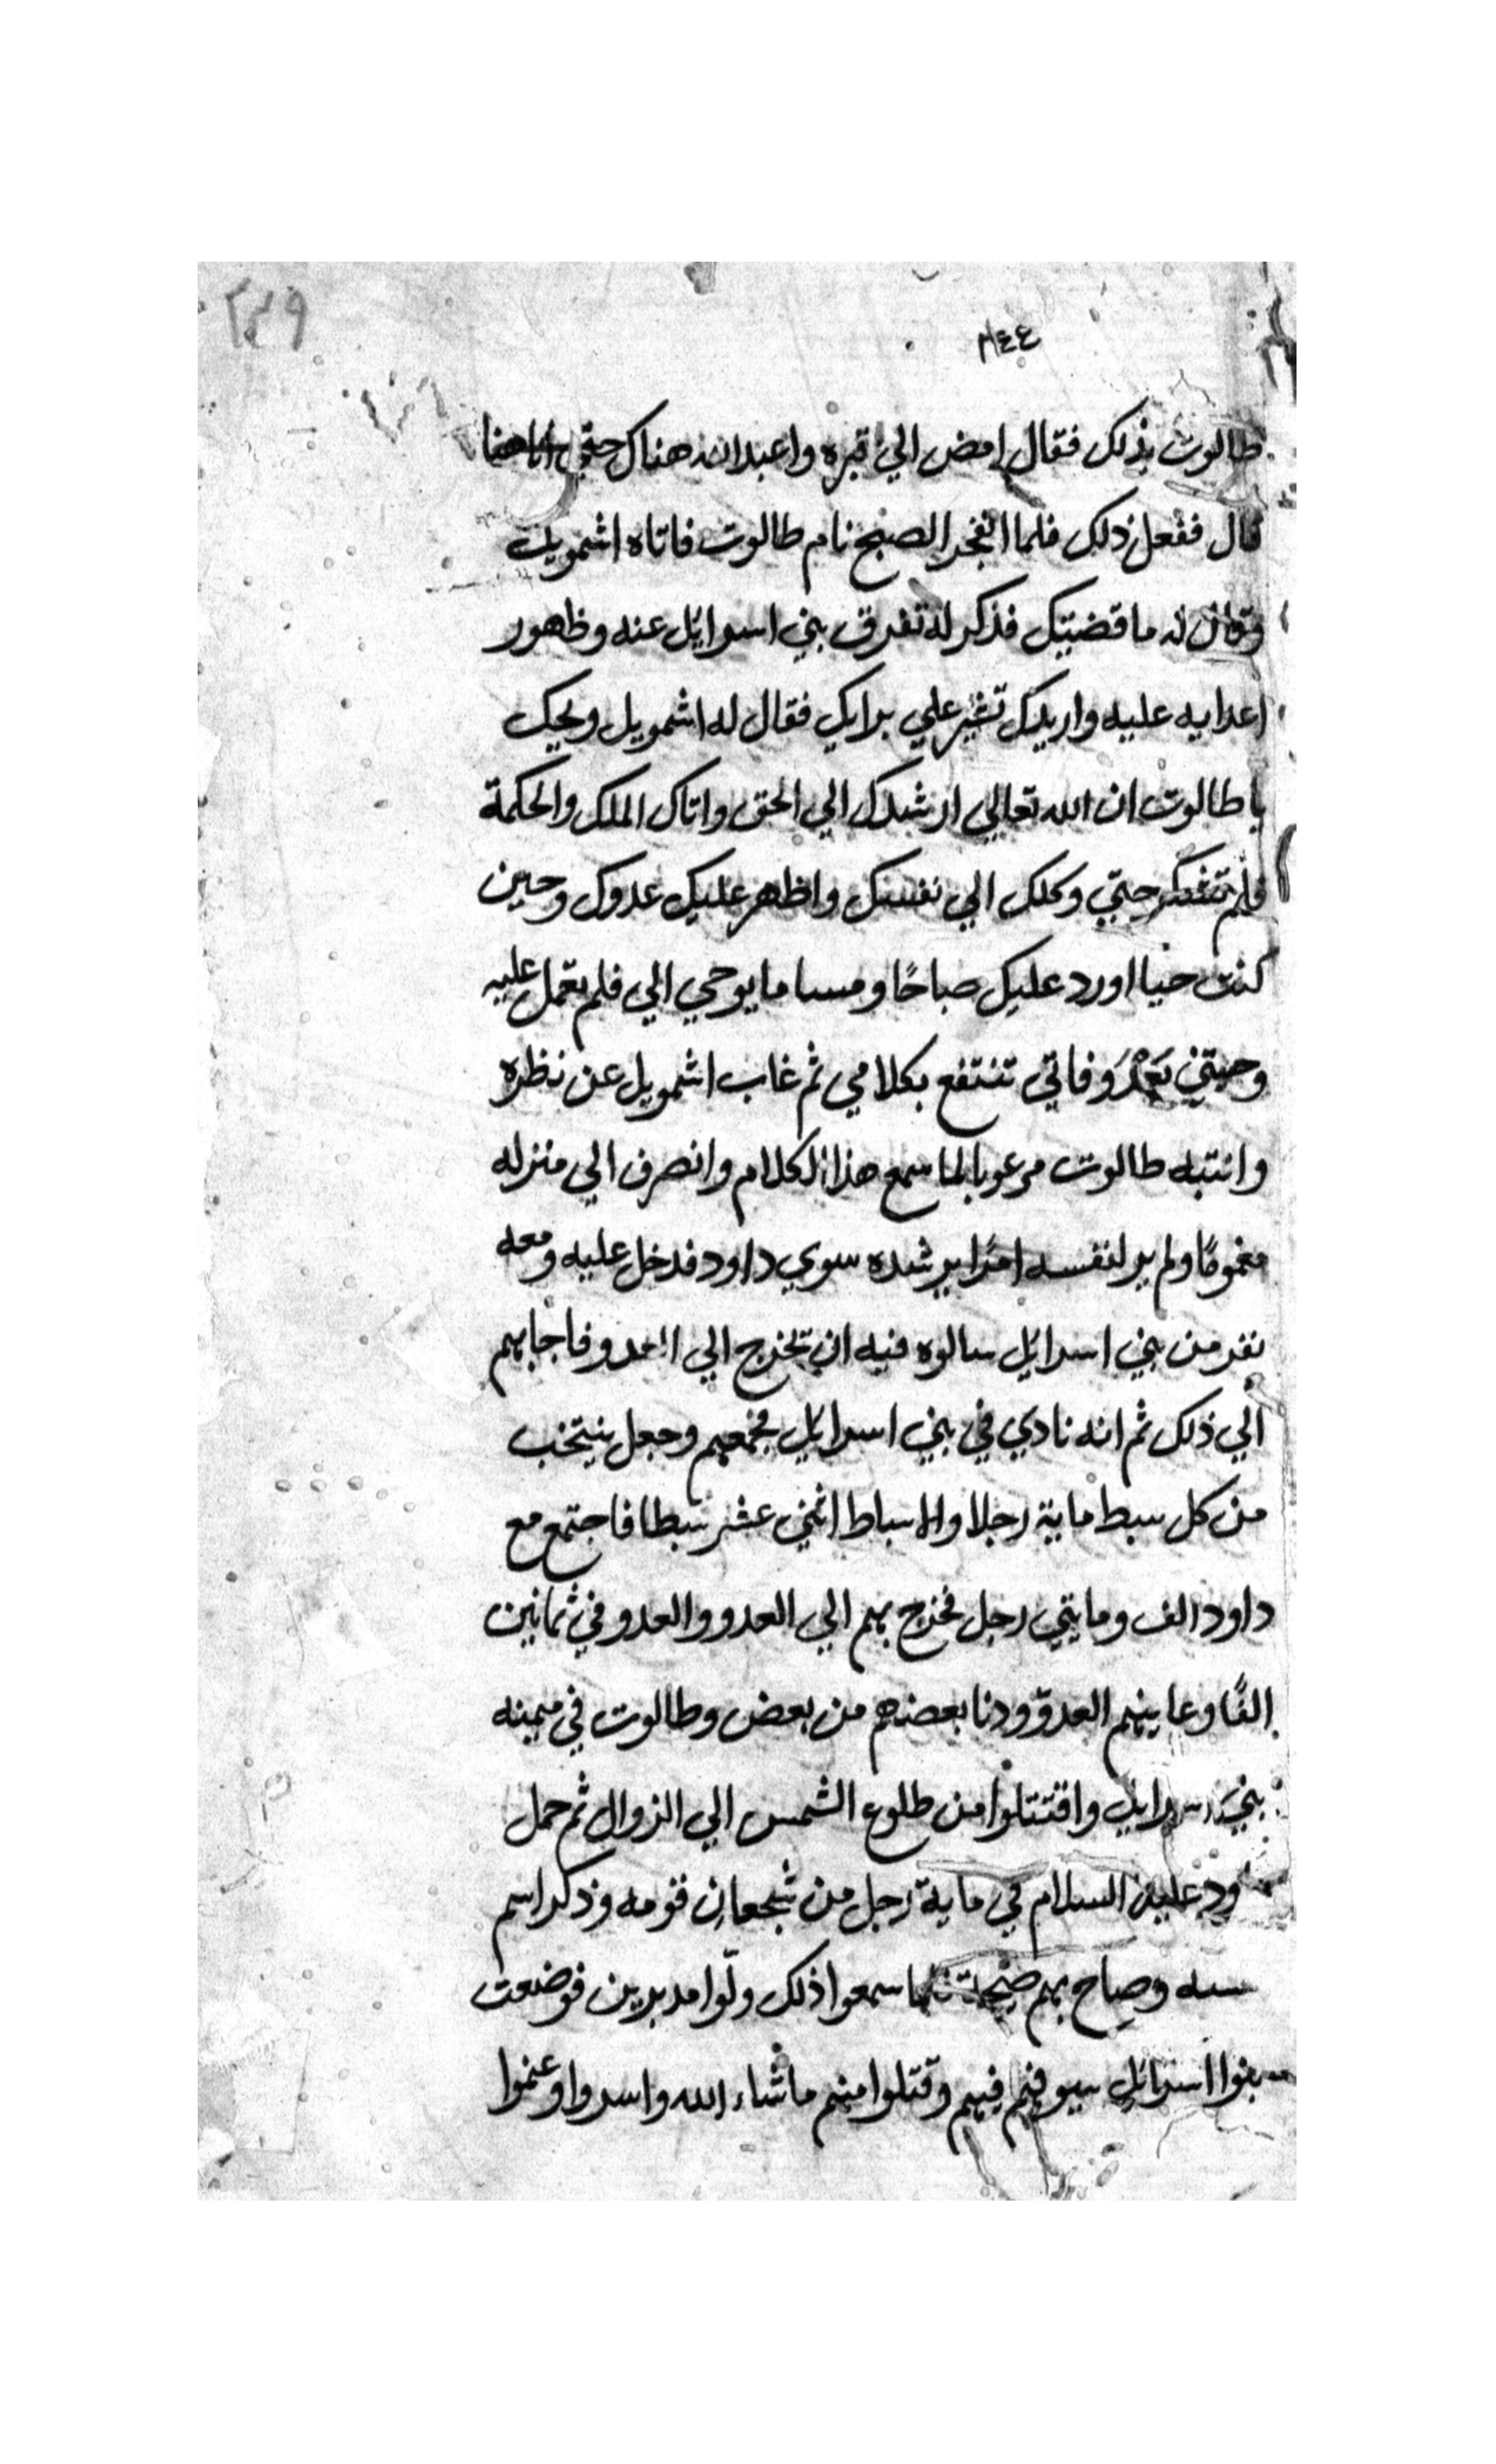 ٢٣٩
٢٤٤
طالوت بذلك فقال امض الي قبره واعبد الله هناك حتي
قال ففعل ذلك فلما انفجر الصبح نام طالوت فاتاه اشمويل
وقال له ما قضيتك فذكر له تفرق بني اسرايل عنه وظهور
اعدايه عليه واريدك تشير علي برايك فقال له اشمويل ويحيك
يا طالوت ان الله تعالي ارشدك الي الحق واتاك الملك والحكمة
فلم تتفكر حتي وكلك الي نفسك واظهر عليك عدوك وحين
كنت حيا اورد عليك صباحًا ومسا ما يوحي الي فلم تعمل عليه
وجيتني بَعْدَ وفاتي تنتفع بكلامي ثم غاب اشمويل عن نظره
وانتبه طالوت مرعوبا لما سمع هذا الكلام وانصرف الي منزله
مغمومًا ولم ير لنفسه امرًا يرشده سوي داود فدخل عليه ومعه
نفر من بني اسرايل سالوه فيه ان تخرج الي العدو فاجابهم
الي ذلك ثم انه نادي في بني اسرايل فجمعهم وجعل ينتخب
من كل سبط ماية رجلا والاسباط اثني عشر سبطا فاجتمع مع
داود الف ومايتي رجل فخرج بهم الي العدو والعدو في ثمانين
الفًا وعاينهم العدوّ ودنا بعضهم من بعض وطالوت في ميمنه
بني اسرايل واقتتلوا من طلوع الشمس الي الزوال ثم حمل
ود عليه السلام في ماية رجل من شجعان قومه وذكر اسم
وصاح بهم صيحة فلما سمعوا ذلك ولّوا مدبرين فوضعت
بنوا اسرايل سيوفهم فيهم وقتلوا منهم ما شاء الله واسروا وغنموا